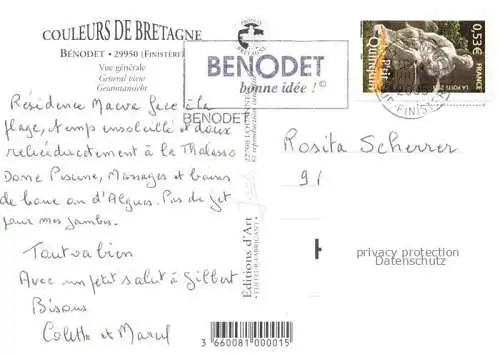 COULEURS DE BRETAGNE
BÉNODET - 29950 (FINISTÈRE)
Vue générale
General view
Gesamtansicht
Résidence Maeva face à la
plage, temps ensoleillé et doux
à la Thalasso
Donc Piscine, Massages et bains
de boue ou d'Algues. Pas de jet
pour mes jambes.
Tout va bien
Avec un petit salut à Gilbert
Bisous
Colette et Marcel
PRODUIT EN BRETAGNE
BENODET
bonne idée !©
BENODET
Éditions d'Art
EDITEUR-FABRICANT
0,53€
FRANCE
LA POSTE
Le P'tit
Quinquin
Rosita Scherrer
91
privacy protection
Datenschutz
3 660081 000015